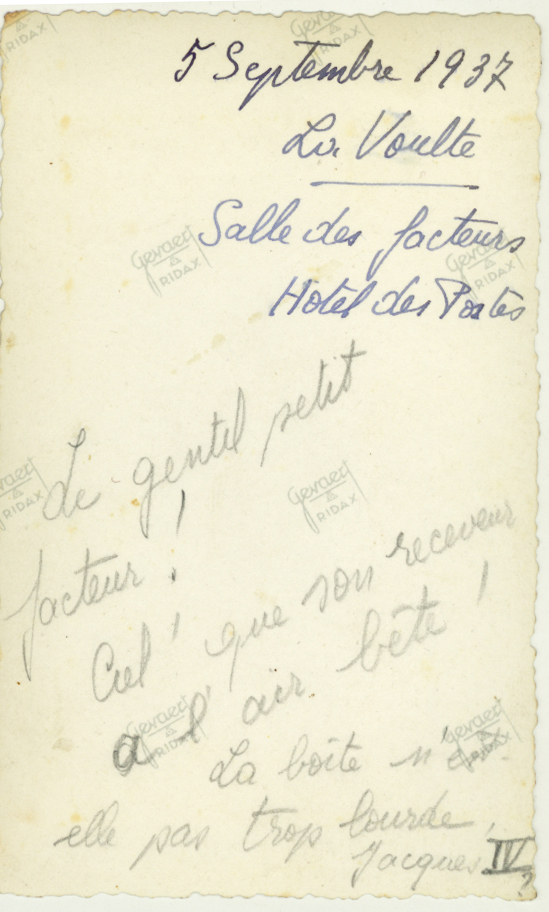 5 Septembre 1937
La Voulte
Salle des facteurs
Hotel des Postes
Le gentil petit
facteur !
Ciel ! que son receveur
a l'air bête !
La boîte n'est
elle pas trop lourde,
Jacques IV
?
Gevaert
RIDAX
Gevaert
RIDAX
Gevaert
RIDAX
Gevaert
RIDAX
Gevaert
RIDAX
Gevaert
RIDAX
Gevaert
RIDAX
Gevaert
RIDAX